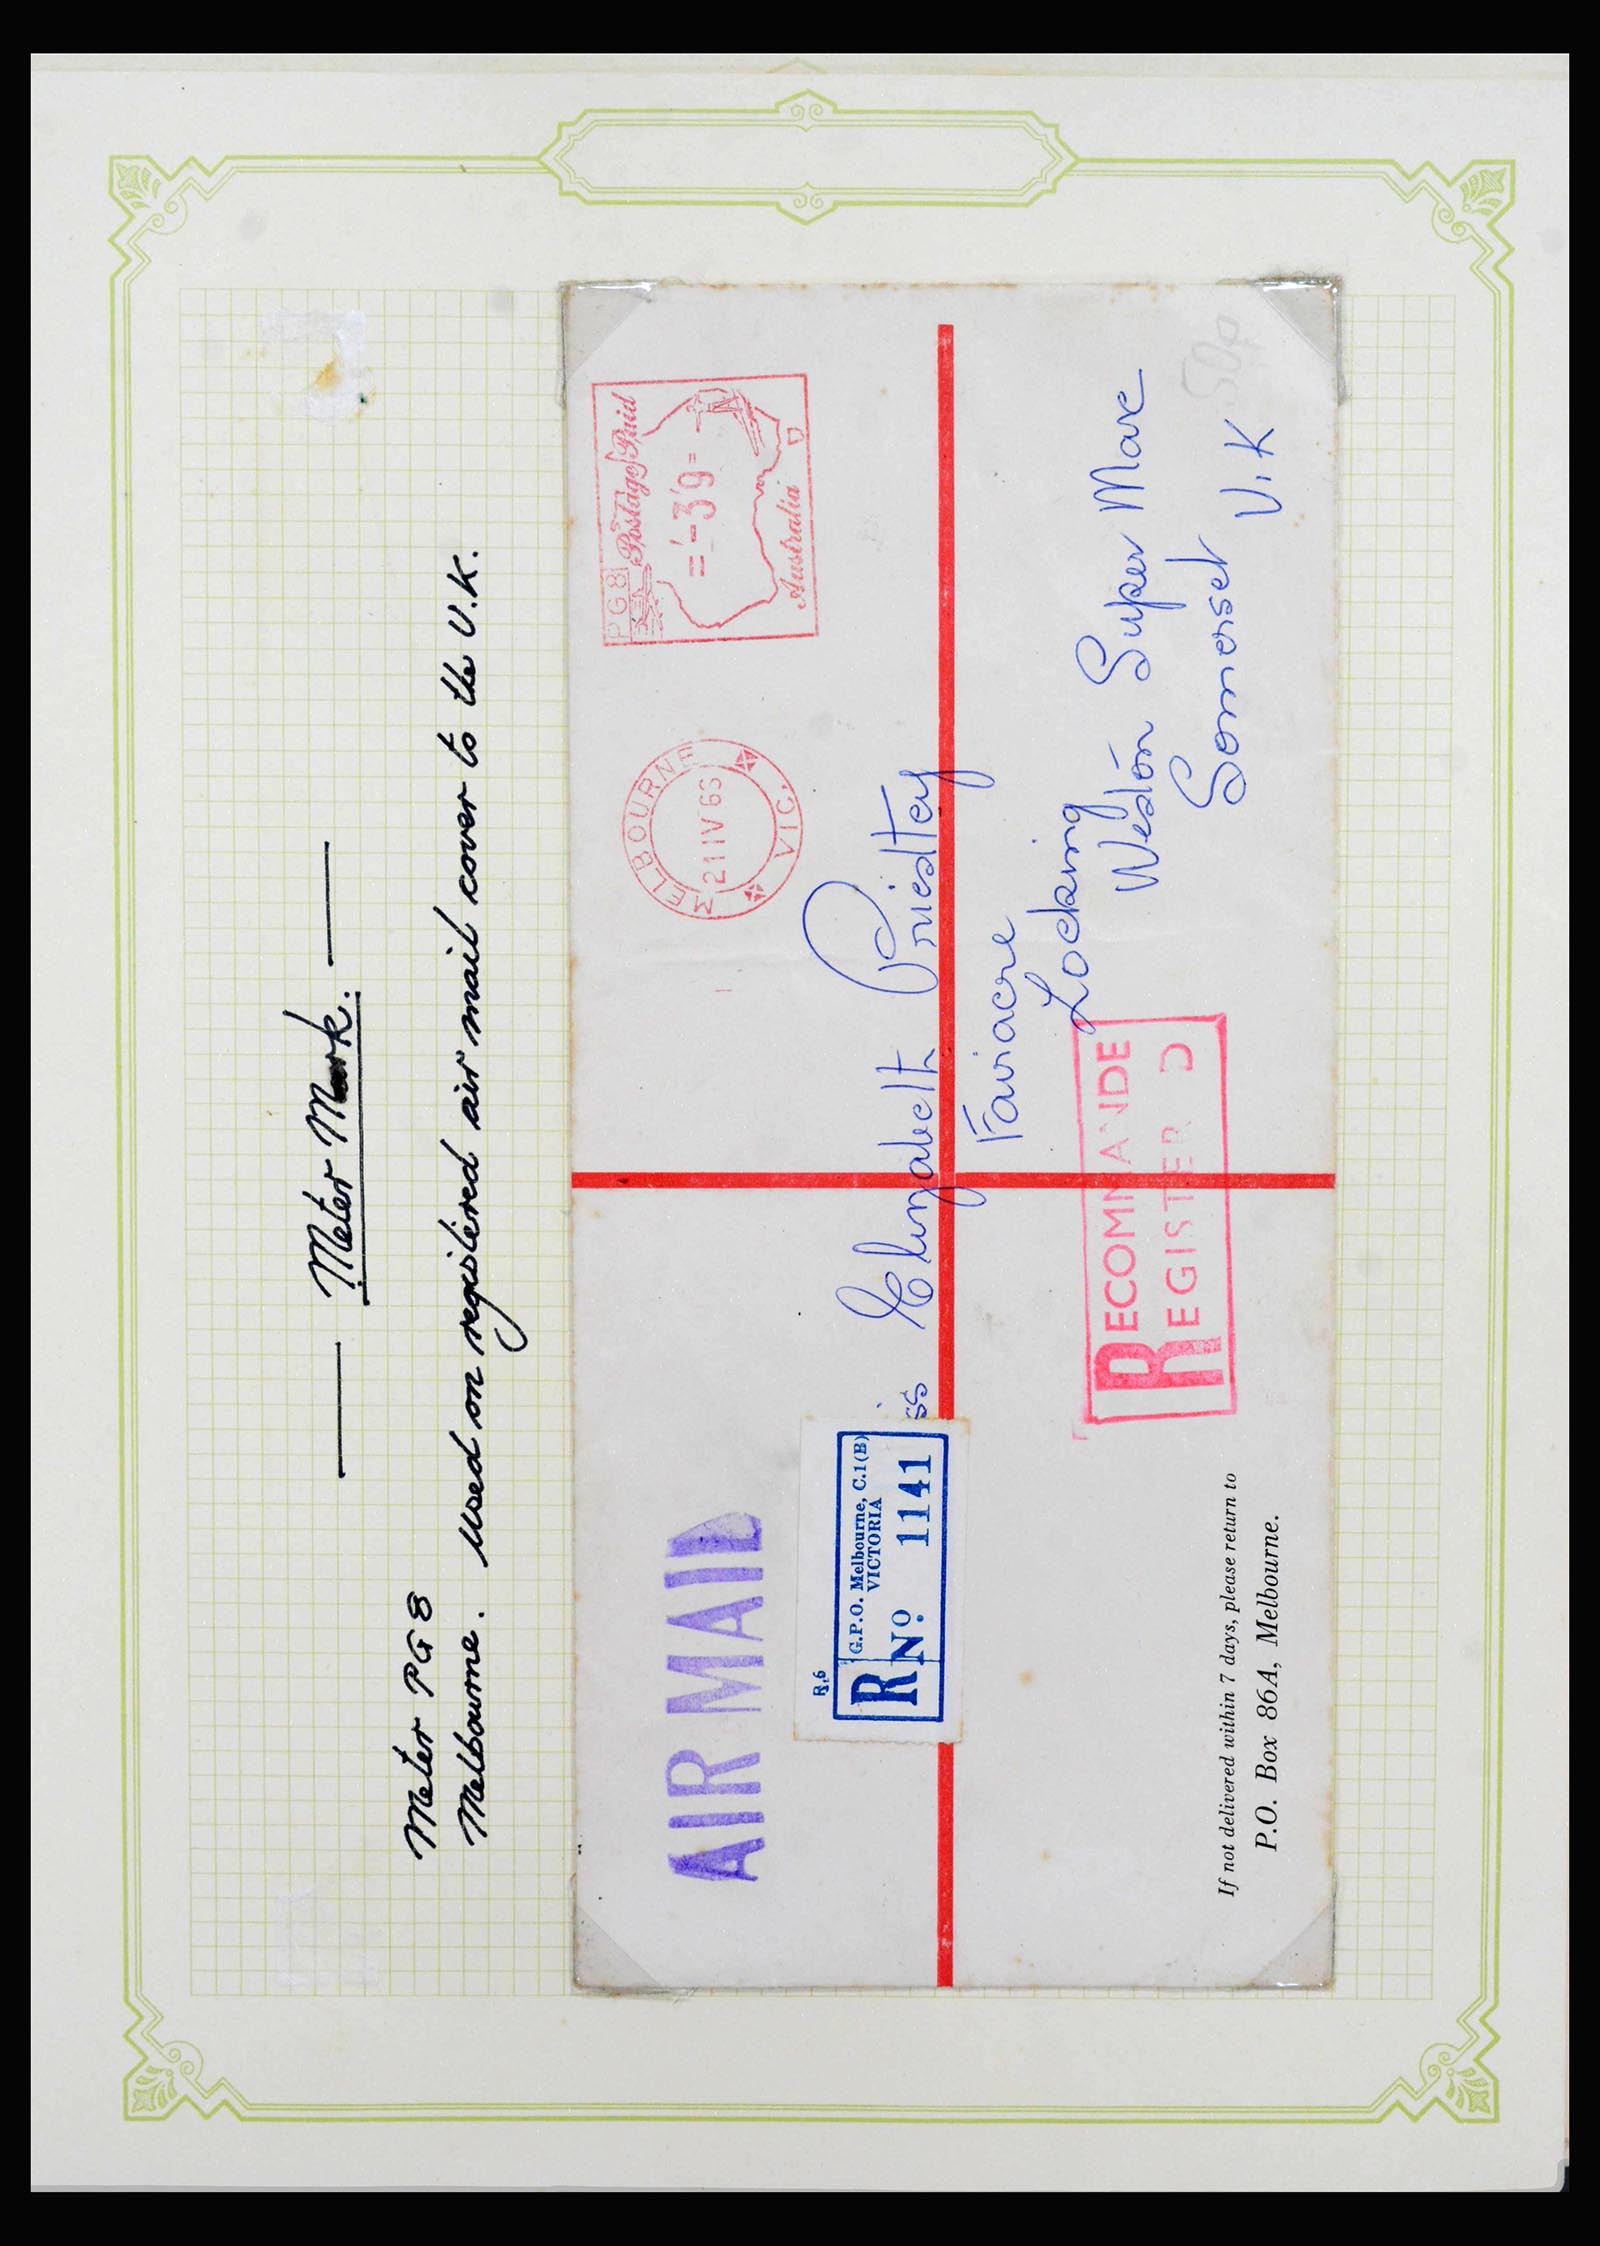 Meter Mark.
Meter PG 8
Melbourne. Used on registered air mail cover to the U.K.
AIR MAIL
MELBOURNE
21 IV 63
VIC.
PG8 Postage Paid
=-3'9=
Australia D
R.6
R G.P.O. Melbourne, C.1 (B)
VICTORIA
No. 1141
ss Elizabeth Priestley
Fairacre
Locking
Weston Super Mare
Somerset
U.K
50p
RECOMMANDE
REGISTER D
If not delivered within 7 days, please return to
P.O. Box 86A, Melbourne.